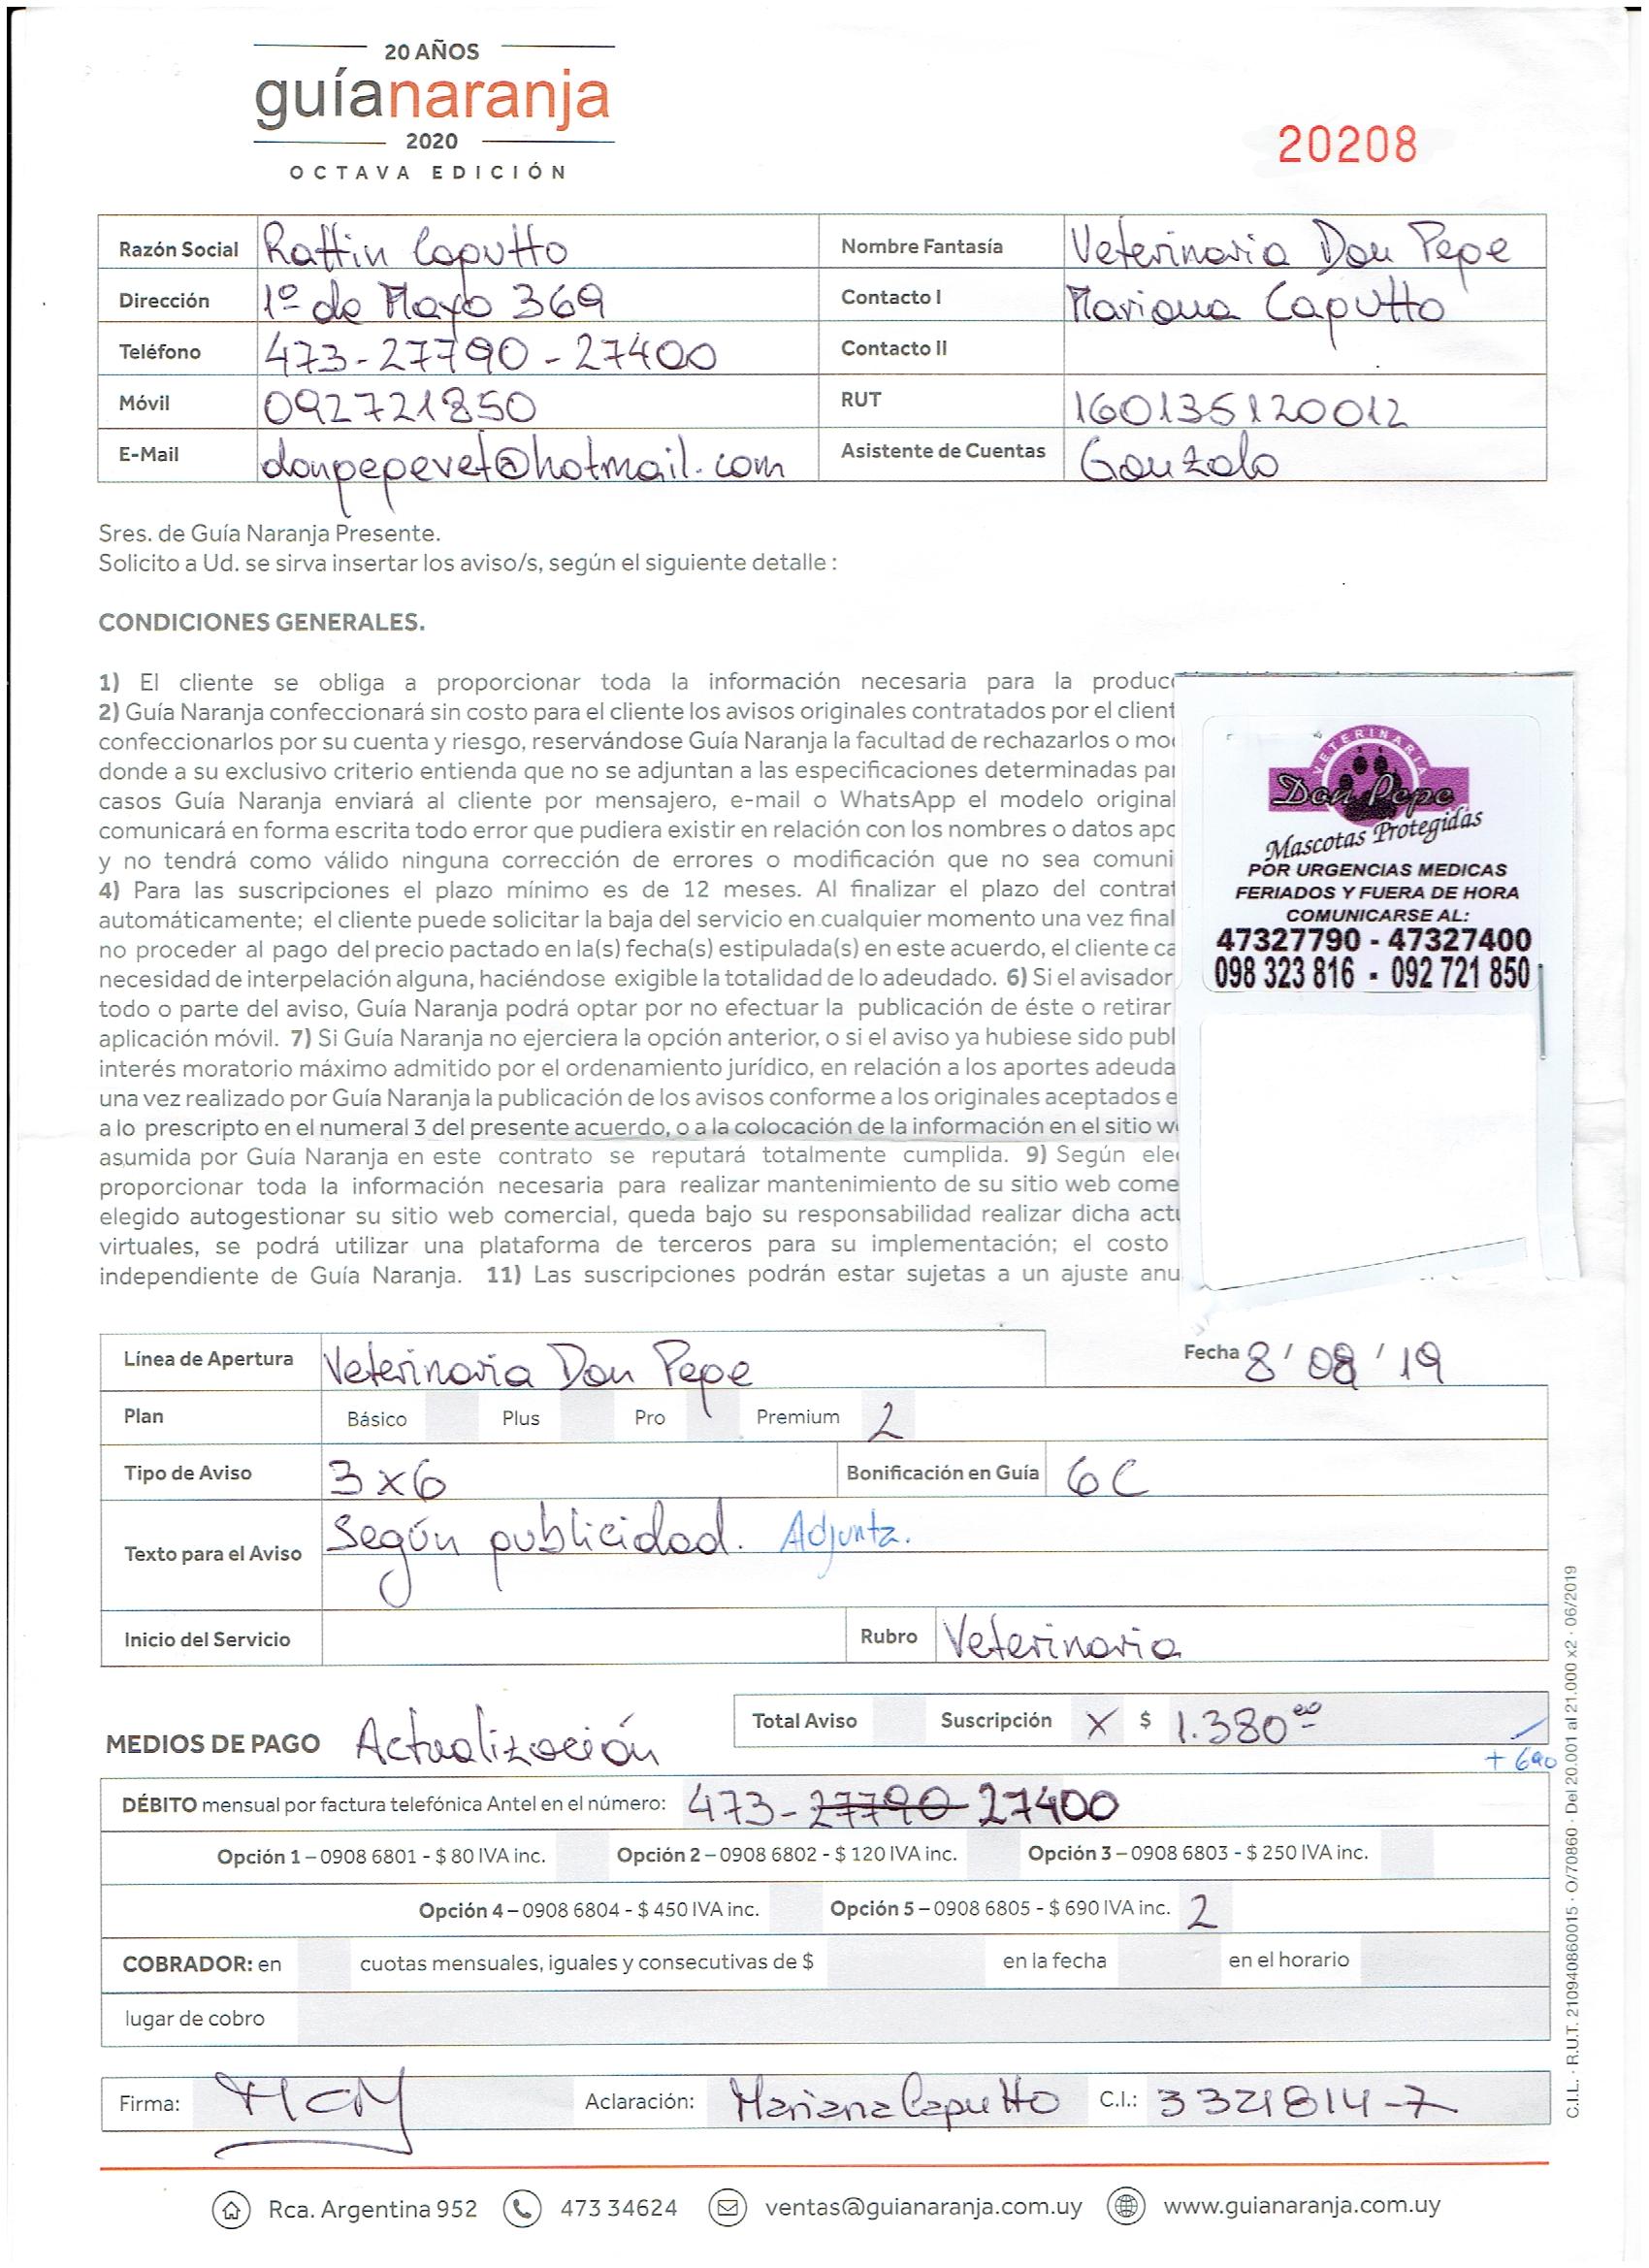 20 AÑOS
guíanaranja
2020
OCTAVA EDICIÓN
20208
Razón Social Rattin Caputto Nombre Fantasía Veterinaria Don Pepe
Dirección 1º de Mayo 369 Contacto I Mariana Caputto
Teléfono 473-27790-27400 Contacto II
Móvil 092721850 RUT 160135120012
E-Mail donpepevet@hotmail.com Asistente de Cuentas Gonzalo
Sres. de Guía Naranja Presente.
Solicito a Ud. se sirva insertar los aviso/s, según el siguiente detalle :
CONDICIONES GENERALES.
1) El cliente se obliga a proporcionar toda la información necesaria para la produc
2) Guía Naranja confeccionará sin costo para el cliente los avisos originales contratados por el client
confeccionarlos por su cuenta y riesgo, reservándose Guía Naranja la facultad de rechazarlos o mo
donde a su exclusivo criterio entienda que no se adjuntan a las especificaciones determinadas par
casos Guía Naranja enviará al cliente por mensajero, e-mail o WhatsApp el modelo original
comunicará en forma escrita todo error que pudiera existir en relación con los nombres o datos apo
y no tendrá como válido ninguna corrección de errores o modificación que no sea comuni
4) Para las suscripciones el plazo mínimo es de 12 meses. Al finalizar el plazo del contrat
automáticamente; el cliente puede solicitar la baja del servicio en cualquier momento una vez final
no proceder al pago del precio pactado en la(s) fecha(s) estipulada(s) en este acuerdo, el cliente ca
necesidad de interpelación alguna, haciéndose exigible la totalidad de lo adeudado. 6) Si el avisador
todo o parte del aviso, Guía Naranja podrá optar por no efectuar la publicación de éste o retirar
aplicación móvil. 7) Si Guía Naranja no ejerciera la opción anterior, o si el aviso ya hubiese sido publ
interés moratorio máximo admitido por el ordenamiento jurídico, en relación a los aportes adeuda
una vez realizado por Guía Naranja la publicación de los avisos conforme a los originales aceptados e
a lo prescripto en el numeral 3 del presente acuerdo, o a la colocación de la información en el sitio w
asumida por Guía Naranja en este contrato se reputará totalmente cumplida. 9) Según ele
proporcionar toda la información necesaria para realizar mantenimiento de su sitio web come
elegido autogestionar su sitio web comercial, queda bajo su responsabilidad realizar dicha actu
virtuales, se podrá utilizar una plataforma de terceros para su implementación; el costo
independiente de Guía Naranja. 11) Las suscripciones podrán estar sujetas a un ajuste anu
VETERINARIA
Don Pepe
Mascotas Protegidas
POR URGENCIAS MEDICAS
FERIADOS Y FUERA DE HORA
COMUNICARSE AL:
47327790 - 47327400
098 323 816 - 092 721 850
Línea de Apertura Veterinaria Don Pepe Fecha 8/08/19
Plan Básico Plus Pro Premium 2
Tipo de Aviso 3x6 Bonificación en Guía 6C
Texto para el Aviso Según publicidad. Adjunta.
Inicio del Servicio Rubro Veterinaria
Total Aviso Suscripción X $ 1.380 00
MEDIOS DE PAGO Actualización
+ 690
DÉBITO mensual por factura telefónica Antel en el número: 473-27790 27400
Opción 1 – 0908 6801 - $ 80 IVA inc. Opción 2 – 0908 6802 - $ 120 IVA inc. Opción 3 – 0908 6803 - $ 250 IVA inc.
Opción 4 – 0908 6804 - $ 450 IVA inc. Opción 5 – 0908 6805 - $ 690 IVA inc. 2
COBRADOR: en cuotas mensuales, iguales y consecutivas de $ en la fecha en el horario
lugar de cobro
Firma: Aclaración: Mariana Caputto C.I.: 3321814-7
C.I.L. · R.U.T. 210940860015 · O/70860 · Del 20.001 al 21.000 x2 · 06/2019
Rca. Argentina 952 473 34624 ventas@guianaranja.com.uy www.guianaranja.com.uy